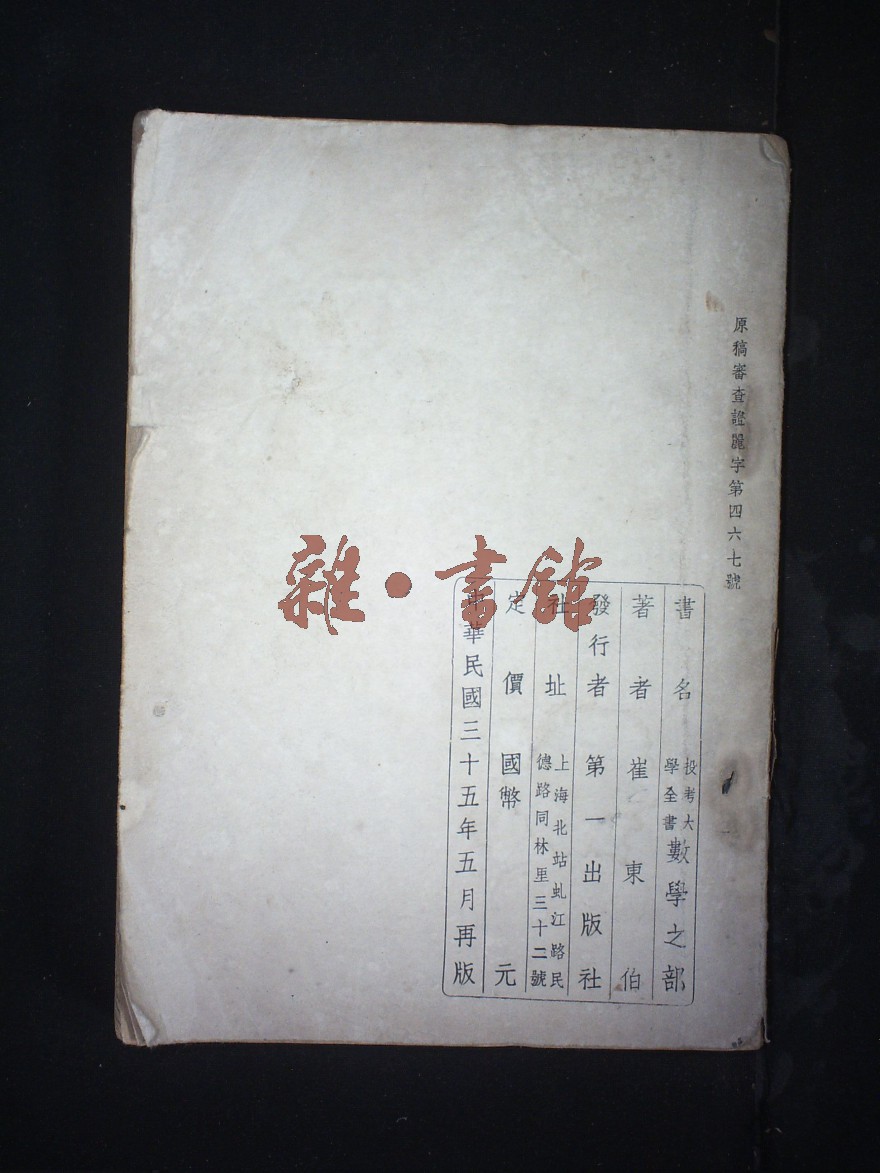 原稿審查證圖字第四六七號
書名 投考大學全書 數學之部
著者 崔東伯
發行者 第一出版社
社址 上海北站虬江路民德路同林里三十二號
定價 國幣 元
中華民國三十五年五月再版
雜·書館